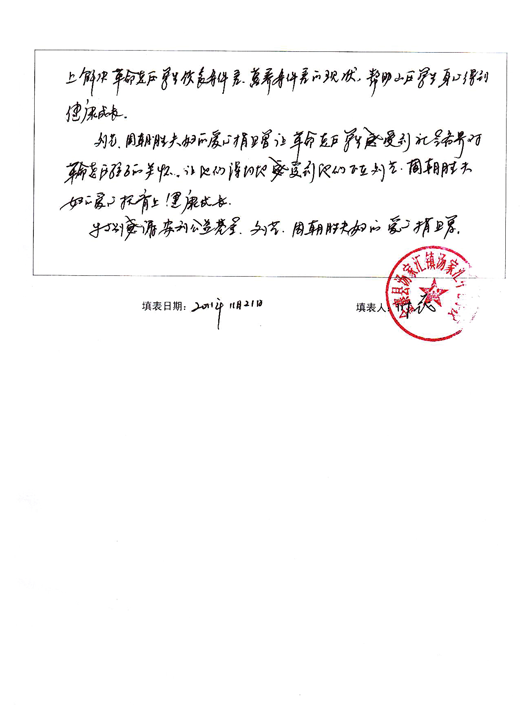 上解决革命老区学生饮食条件差、营养条件差的现状，帮助山区学生身心得到
健康成长。
刘芸、周朝胜夫妇的爱心捐赠让革命老区学生感受到社会各界对
革命老区孩子的关怀。让他们深切地感受到他们在刘芸、周朝胜夫
妇的爱心抚育上健康成长。
特别感谢安利公益基金、刘芸、周朝胜夫妇的爱心捐赠。
填表日期：2011年11月21日
填表人：
县汤家汇镇汤家汇